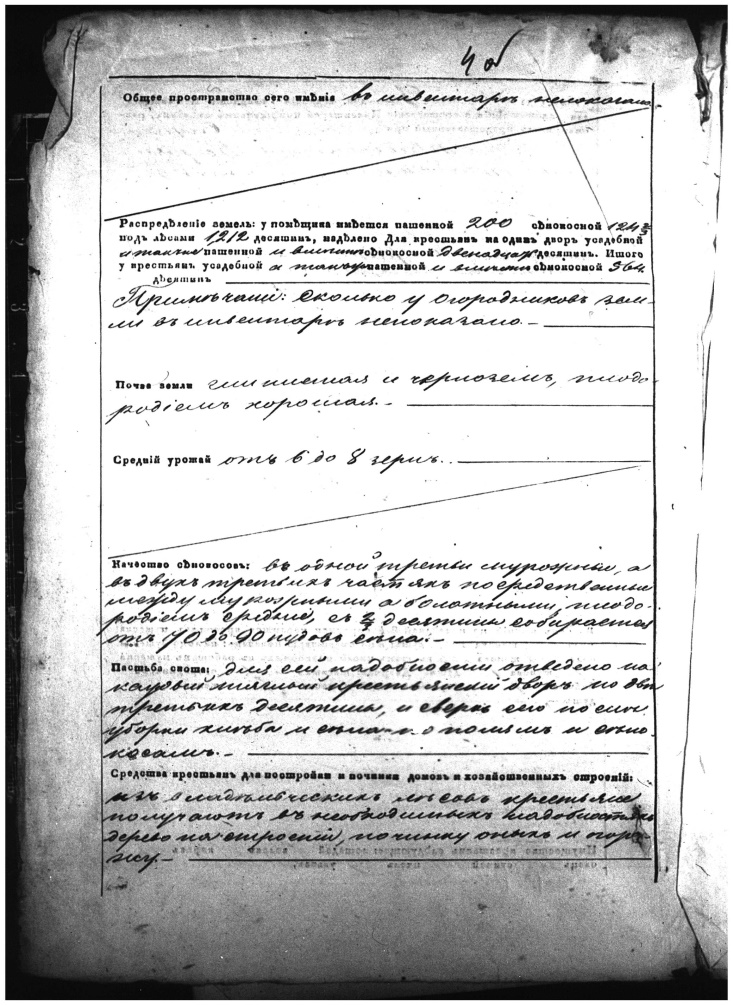 4 об
Общее пространство сего имѣнія въ инвентарѣ непоказано.
Распредѣленіе земель: у помѣщика имѣется пашенной 200 сѣнокосной 124⅔
подъ лѣсами 1212 десятинъ, надѣлено Для крестьянъ на одинъ дворъ усадебной
а также пашенной и вмѣстѣ сѣнокосной двенадцать десятинъ. Итого
у крестьянъ усадебной а также пашенной и вмѣстѣ сѣнокосной 364
десятинъ
Примѣчаніе: Сколько у огородниковъ зем-
ли въ инвентарѣ непоказано. –
Почва земли глинистая и черноземъ, плодо-
родіемъ хорошая. –
Средній урожай отъ 6 до 8 зеренъ. –
Качество сѣнокосовъ: въ одной третьи мурожныи, а
въ двухъ третьихъ частяхъ посредственныи
между мурожными а болотными, плодо-
родіемъ средніе, съ десятины собирается
отъ 70 до 90 пудовъ сѣна. –
Пастьба скота: для сей надобности отведено на
каждый тяглый крестьянскій дворъ по двѣ
третьихъ десятины, и сверхъ сего послѣ
уборки хлѣба и сѣна по полямъ и сѣно-
косамъ. –
Средства крестьянъ для постройки и починки домовъ и хозяйственныхъ строеній:
изъ владѣльческихъ лѣсовъ крестьяне
получаютъ въ необходимыхъ надобностяхъ
дерево на строеніи, починку оныхъ и огоро-
жу. –